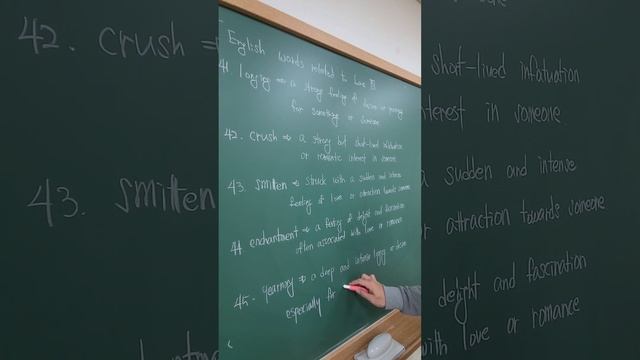 English words related to Love III
41 longing ⇒ a strong feeling of desire or yearning
for something or someone
42. crush ⇒ a strong but short-lived infatuation
or romantic interest in someone
43. smitten ⇒ struck with a sudden and intense
feeling of love or attraction towards someone
44. enchantment ⇒ a feeling of delight and fascination
often associated with love or romance
45. yearning ⇒ a deep and intense longing or desire
especially for
42. crush ⇒
43. smitten
short-lived infatuation
interest in someone
a sudden and intense
or attraction towards someone
delight and fascination
with love or romance